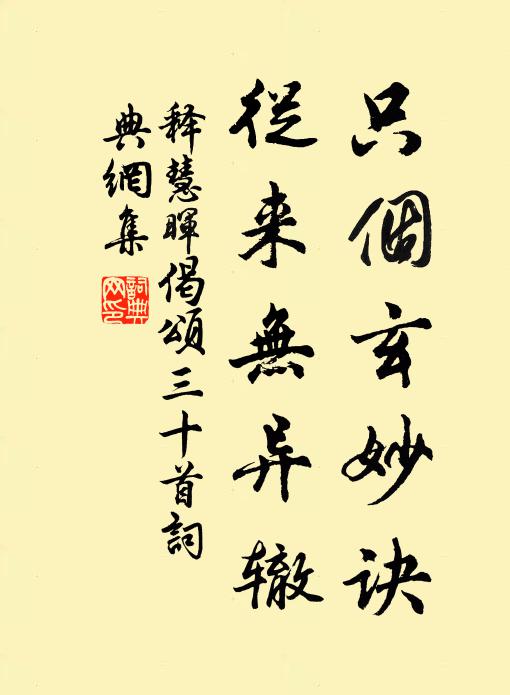 只個玄妙诀
從来無异辙
释慧暉偈頌三十首詞
典網集
詞典网印